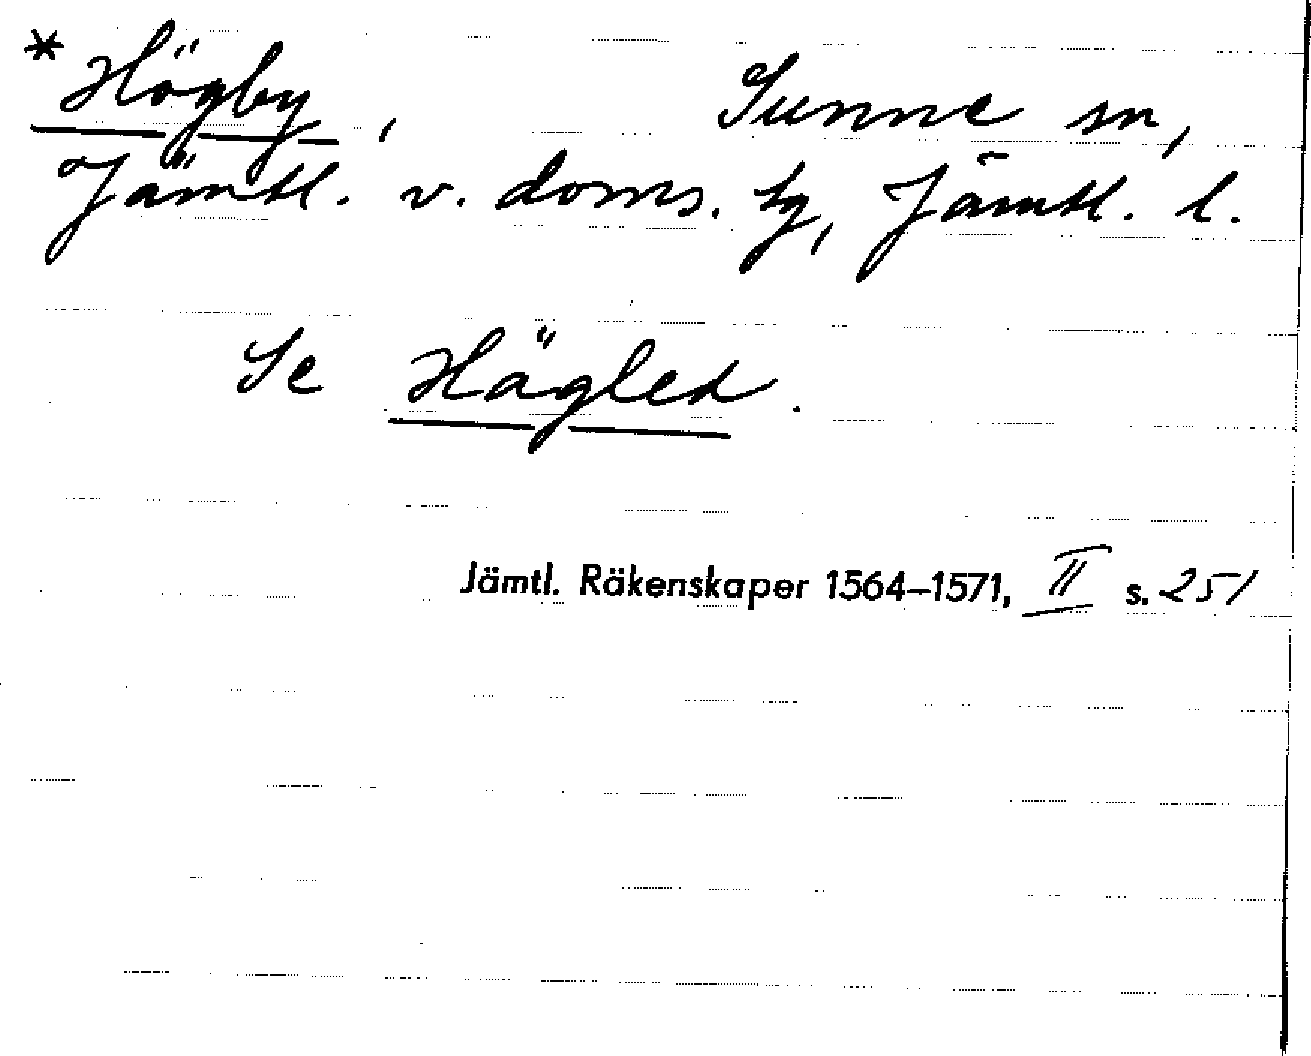 * Högby, Sunne sn,
Jämtl. v. doms. tg, Jämtl. l.
Se Hägled.
Jämtl. Räkenskaper 1564–1571, II s. 251